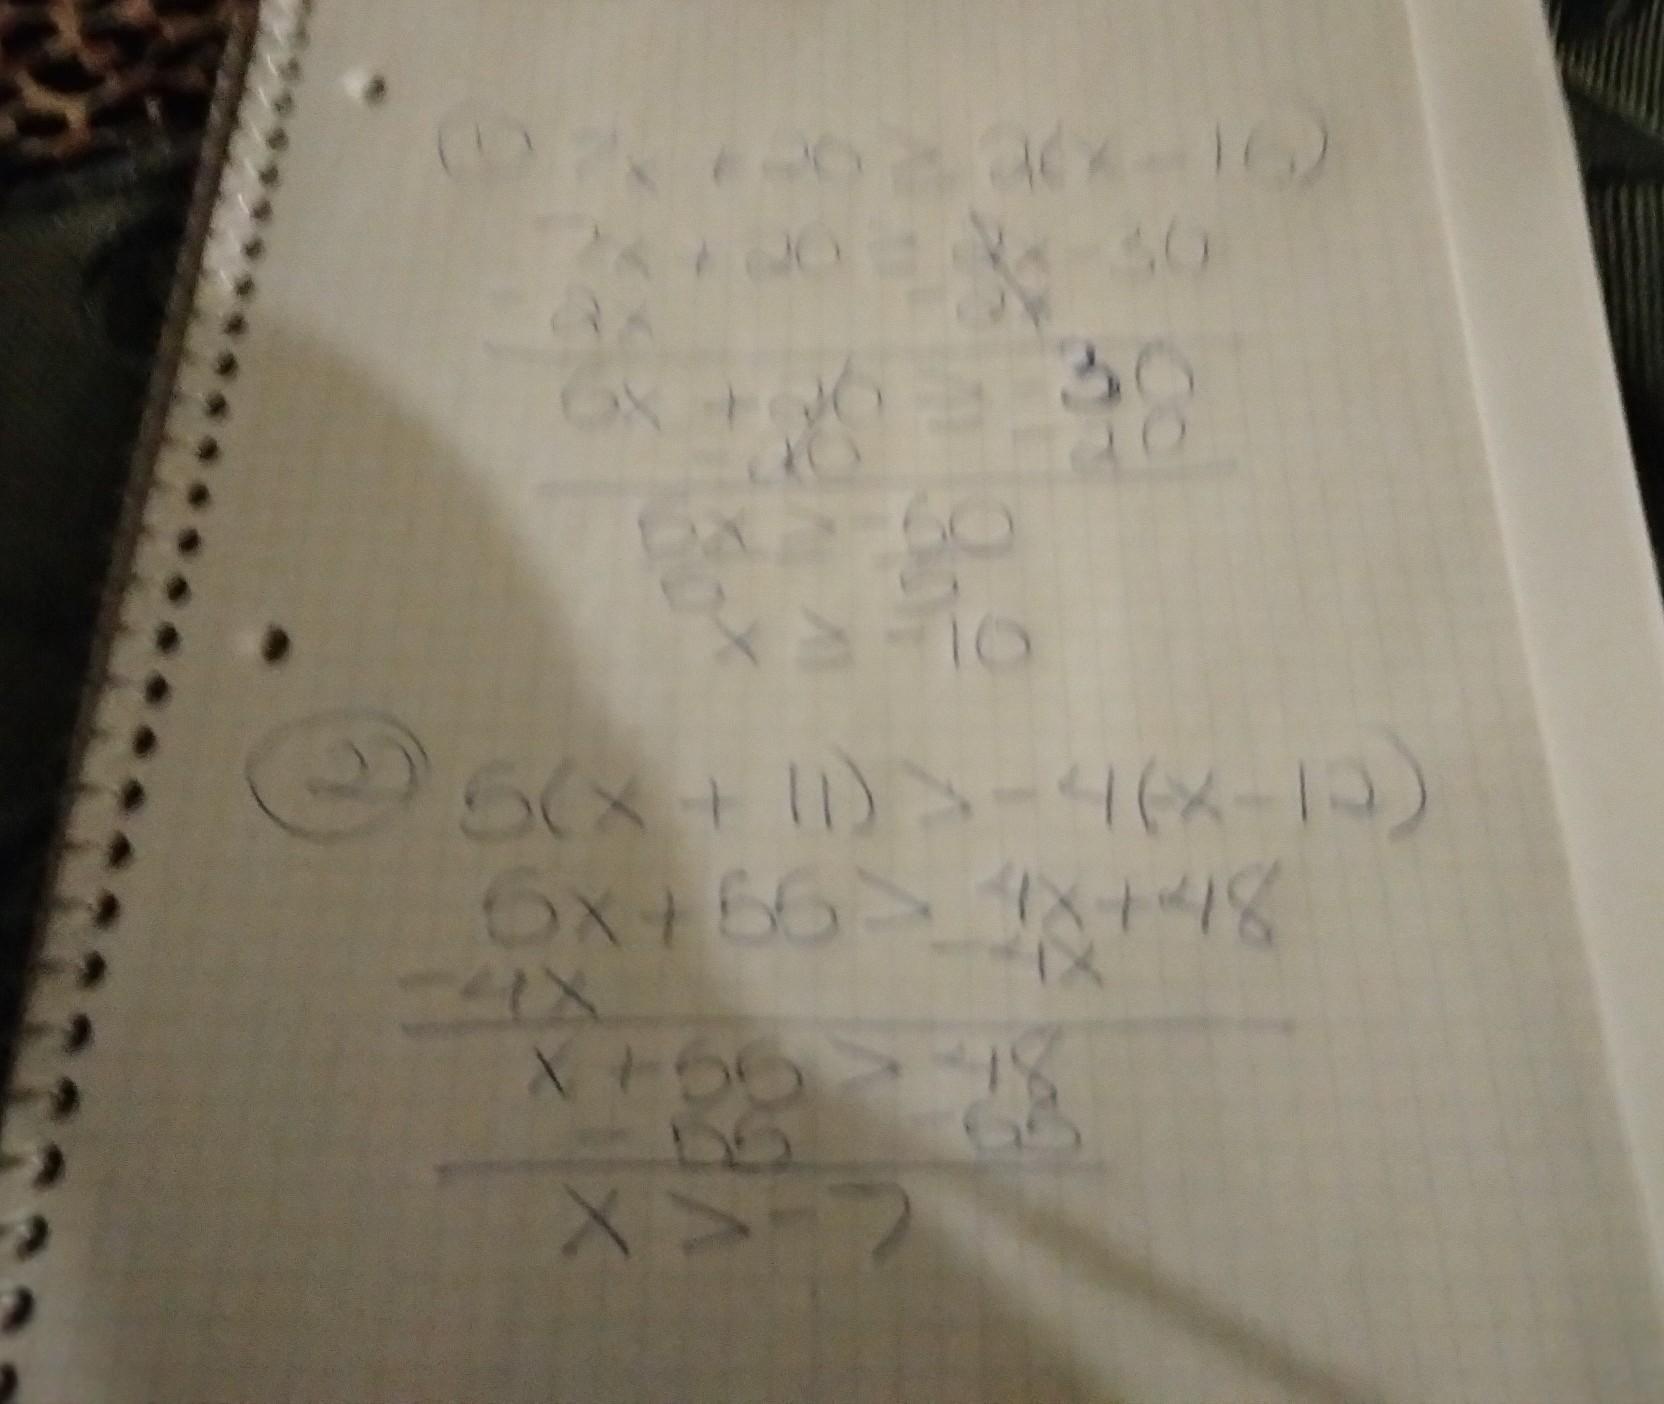 (1) 7x + 20 ≥ 2(x - 15)
7x + 20 ≥ 2x - 30
- 2x - 2x
5x + 20 ≥ - 30
- 20 - 20
5x ≥ -50
5 5
x ≥ -10
(2) 5(x + 11) > -4(-x-12)
5x + 55 > 4x + 48
-4x -4x
x + 55 > 48
- 55 - 55
x > -7